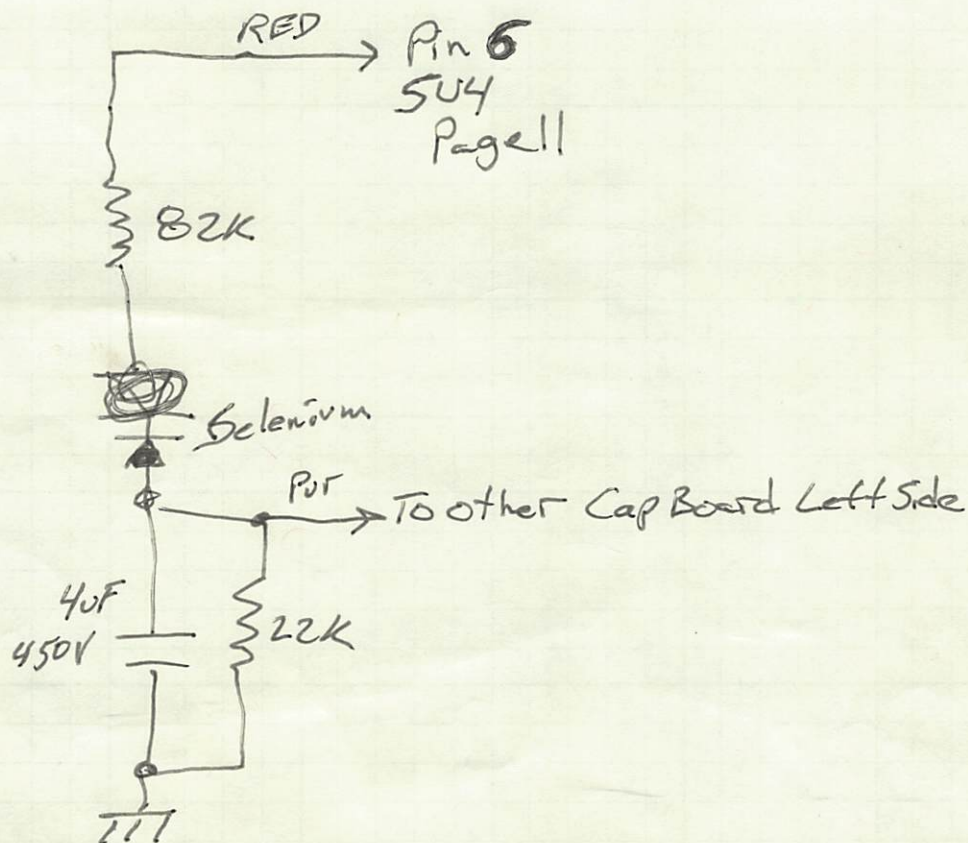 RED
Pin 6
5U4
Page 11
82K
Selenium
Pur
To other Cap Board Left Side
4uF
450V
22K